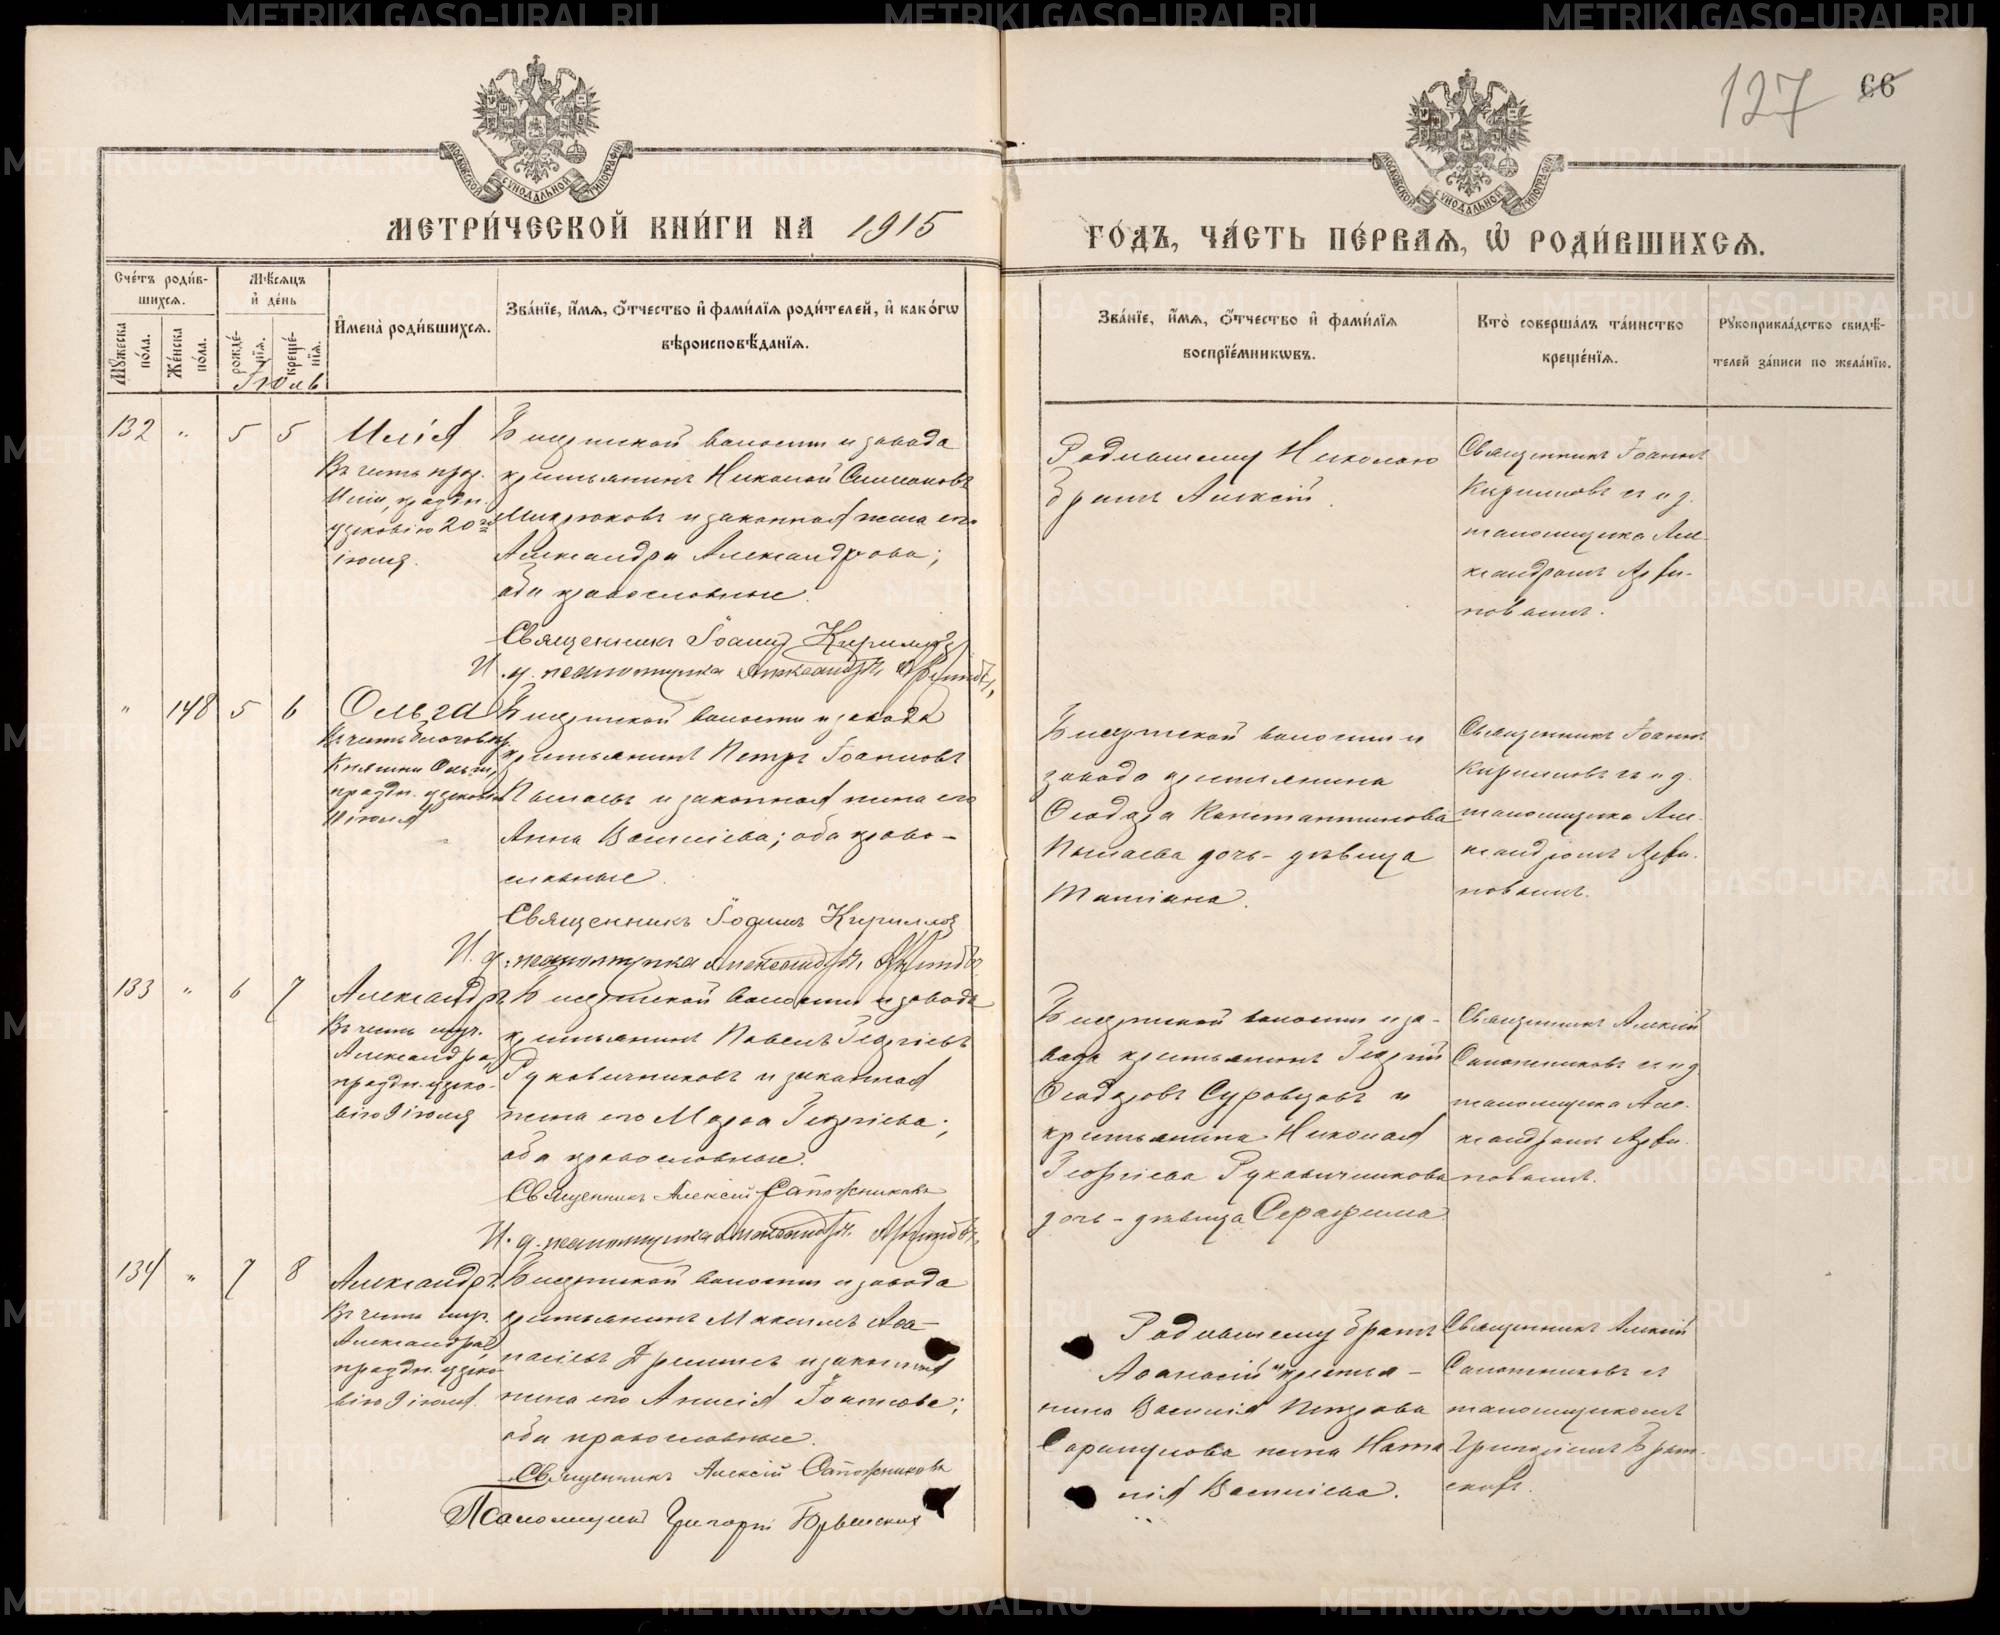 127 66
МОСКОВСКОЙ СѴНОДАЛЬНОЙ ТИПОГРАФІИ
МОСКОВСКОЙ СѴНОДАЛЬНОЙ ТИПОГРАФІИ
МЕТРИ́ЧЕСКОЙ КНИ́ГИ НА 1915 ГО́ДЪ, ЧА́СТЬ ПЕ́РВАѦ, Ѽ РОДИ́ВШИХСѦ.
Сче́тъ роди́в-
шихсѧ.
Мꙋ́жеска по́ла.
Же́нска по́ла.
Мѣ́сѧцъ
и҆ де́нь
рожде́-нїѧ.
креще́-нїѧ.
Іюль
И҆мена̀ роди́вшихсѧ.
Зва́нїе, и҆́мѧ, ѻ҆́тчество и҆ фами́лїѧ роди́телей, и҆ како́гѡ
вѣроисповѣ́данїѧ.
Зва́нїе, и҆́мѧ, ѻ҆́тчество и҆ фами́лїѧ
воспрїе́мникѡвъ.
Кто̀ соверша́лъ та́инство
креще́нїѧ.
Рꙋкоприкла́дство свидѣ́-
телей за́писи по жела́нїю.
132 " 5 5
Илія
Въ честь прор.
Иліи, праздн.
церковію 20го
іюля.
Бисертской волости и завода
крестьянинъ Николай Симоновъ
Мизюковъ и законная жена его
Александра Александрова;
оба православные.
Священникъ Іоаннъ Кирилловъ
И. д. псаломщика Александръ
Родившему Николаю
братъ Алексій.
Священникъ Іоаннъ
Кирилловъ съ и д.
псаломщика Але-
ксандромъ
" 148 5 6
Ольга
Въ честь благовѣр.
Княгини Ольги,
праздн. церковію
11 іюля
Бисертской волости и завода
крестьянинъ Петръ Іоанновъ
Пылаевъ и законная жена его
Анна Васильева; оба право-
славные.
Священникъ Іоаннъ Кирилловъ
И. д. псаломщика Александръ
Бисертской волости и
завода крестьянина
Ѳеодора Константинова
Пылаева дочь-дѣвица
Татіана.
Священникъ Іоаннъ
Кирилловъ съ и д.
псаломщика Але-
ксандромъ
133 " 6 7
Александръ
Въ честь муч.
Александра,
праздн. церко-
вію 9 іюля
Бисертской волости и завода
крестьянинъ Павелъ Георгіевъ
Рукавичниковъ и законная
жена его Марѳа Георгіева;
оба православные.
Священникъ Алексій Сапожниковъ
И. д. псаломщика Александръ
Бисертской волости и за-
вода крестьянинъ Георгій
Ѳеодоровъ Суровцовъ и
крестьянина Николая
Георгіева Рукавичникова
дочь-дѣвица Серафима.
Священникъ Алексій
Сапожниковъ съ и д
псаломщика Але-
ксандромъ
134 " 7 8
Александръ
Въ честь муч.
Александра,
праздн. церко-
вію 9 іюля.
Бисертской волости и завода
крестьянинъ Максимъ Аѳа-
насіевъ и законная
жена его Анисія Іоаннова;
оба православные.
Священникъ Алексій Сапожниковъ
Псаломщикъ Григорій
Родившему братъ
Аѳанасій и крестья-
нина Василія Петрова
Сарапулова жена Ната
лія Васильева.
Священникъ Алексій
Сапожниковъ съ
псаломщикомъ
Григоріемъ
METRIKI.GASO-URAL.RU